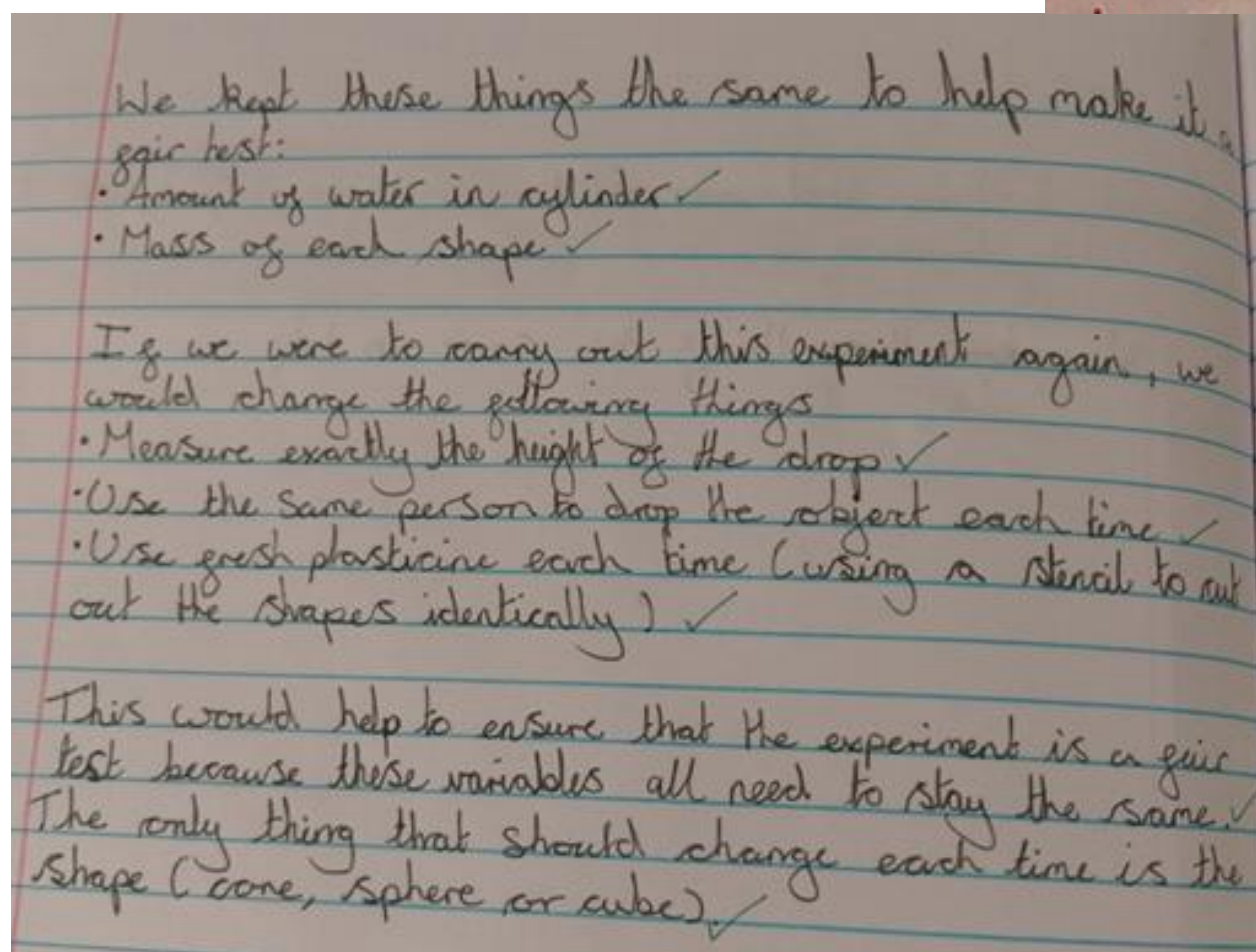 We kept these things the same to help make it a
fair test:
• Amount of water in cylinder ✓
• Mass of each shape ✓
If we were to carry out this experiment again, we
would change the following things
• Measure exactly the height of the drop ✓
• Use the same person to drop the object each time ✓
• Use fresh plasticine each time (using a stencil to cut
out the shapes identically) ✓
This would help to ensure that the experiment is a fair
test because these variables all need to stay the same. ✓
The only thing that should change each time is the
shape (cone, sphere or cube). ✓